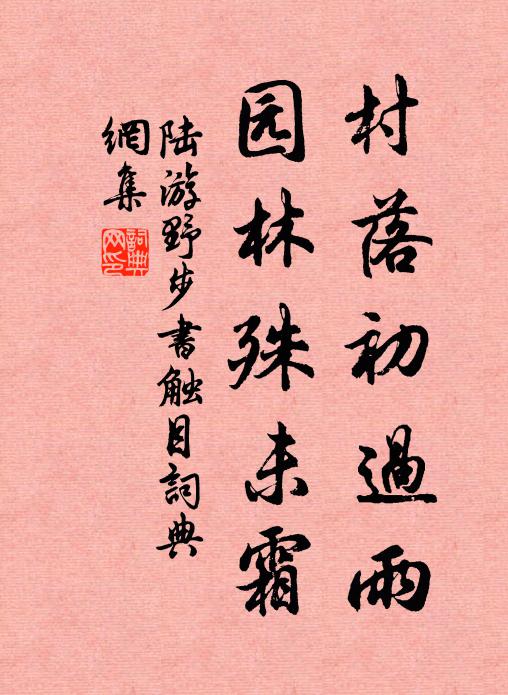 村落初過雨
园林殊未霜
陆游野步書触目詞典
網集
詞典
网印